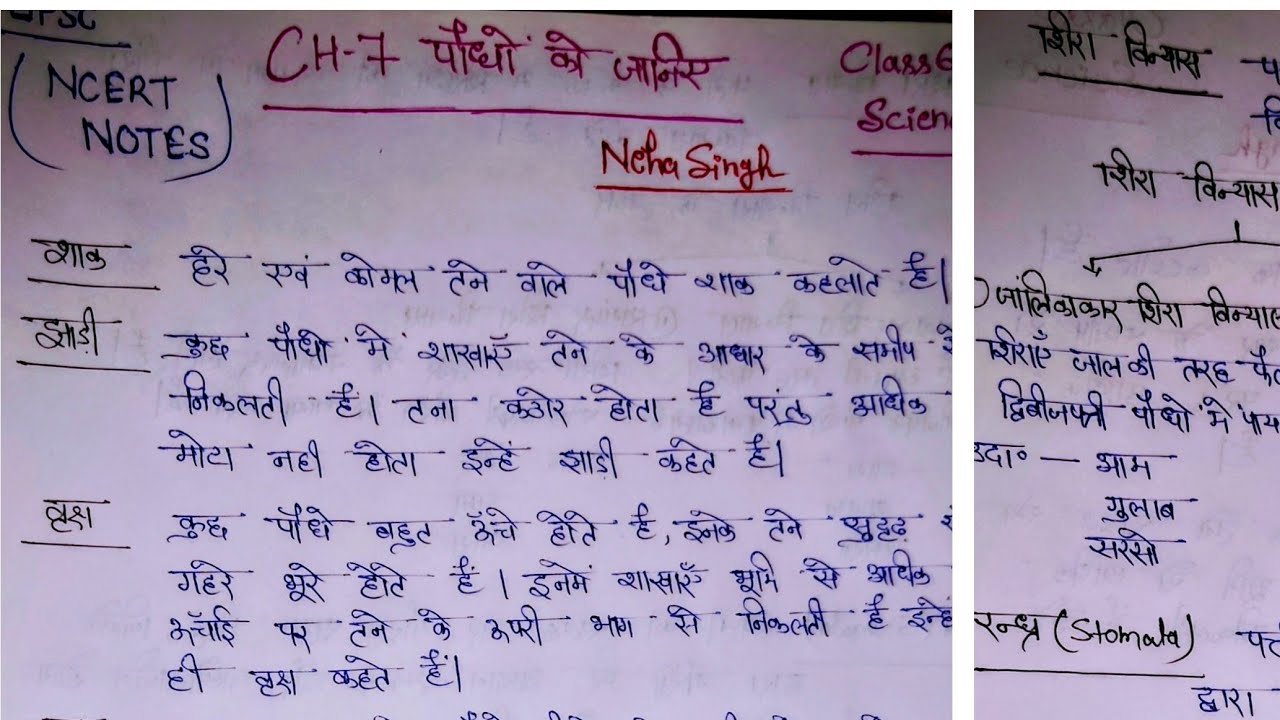 UPSC
(NCERT
NOTES)
CH-7 पौधों को जानिए
Class 6
Scien
Neha Singh
शाक हरे एवं कोमल तने वाले पौधे शाक कहलाते है।
झाडी कुछ पौधों में शाखाएँ तने के आधार के समीप से
निकलती है। तना कठोर होता है परंतु अधिक
मोटा नही होता इन्हें झाडी कहते है।
वृक्ष कुछ पौधे बहुत ऊँचे होते है, इनके तने सुदृढ़
गहरे भूरे होते हैं। इनमें शाखाएँ भूमि से अधिक
ऊँचाई पर तने के ऊपरी भाग से निकलती है इन्हे
ही वृक्ष कहते हैं।
शिरा विन्यास
शिरा विन्यास
जालिकाकार शिरा विन्यास
शिराएँ जाल की तरह
द्विबीजपत्री पौधों में
उदा० — आम
गुलाब
सरसो
रन्ध्र (Stomata)
द्वारा